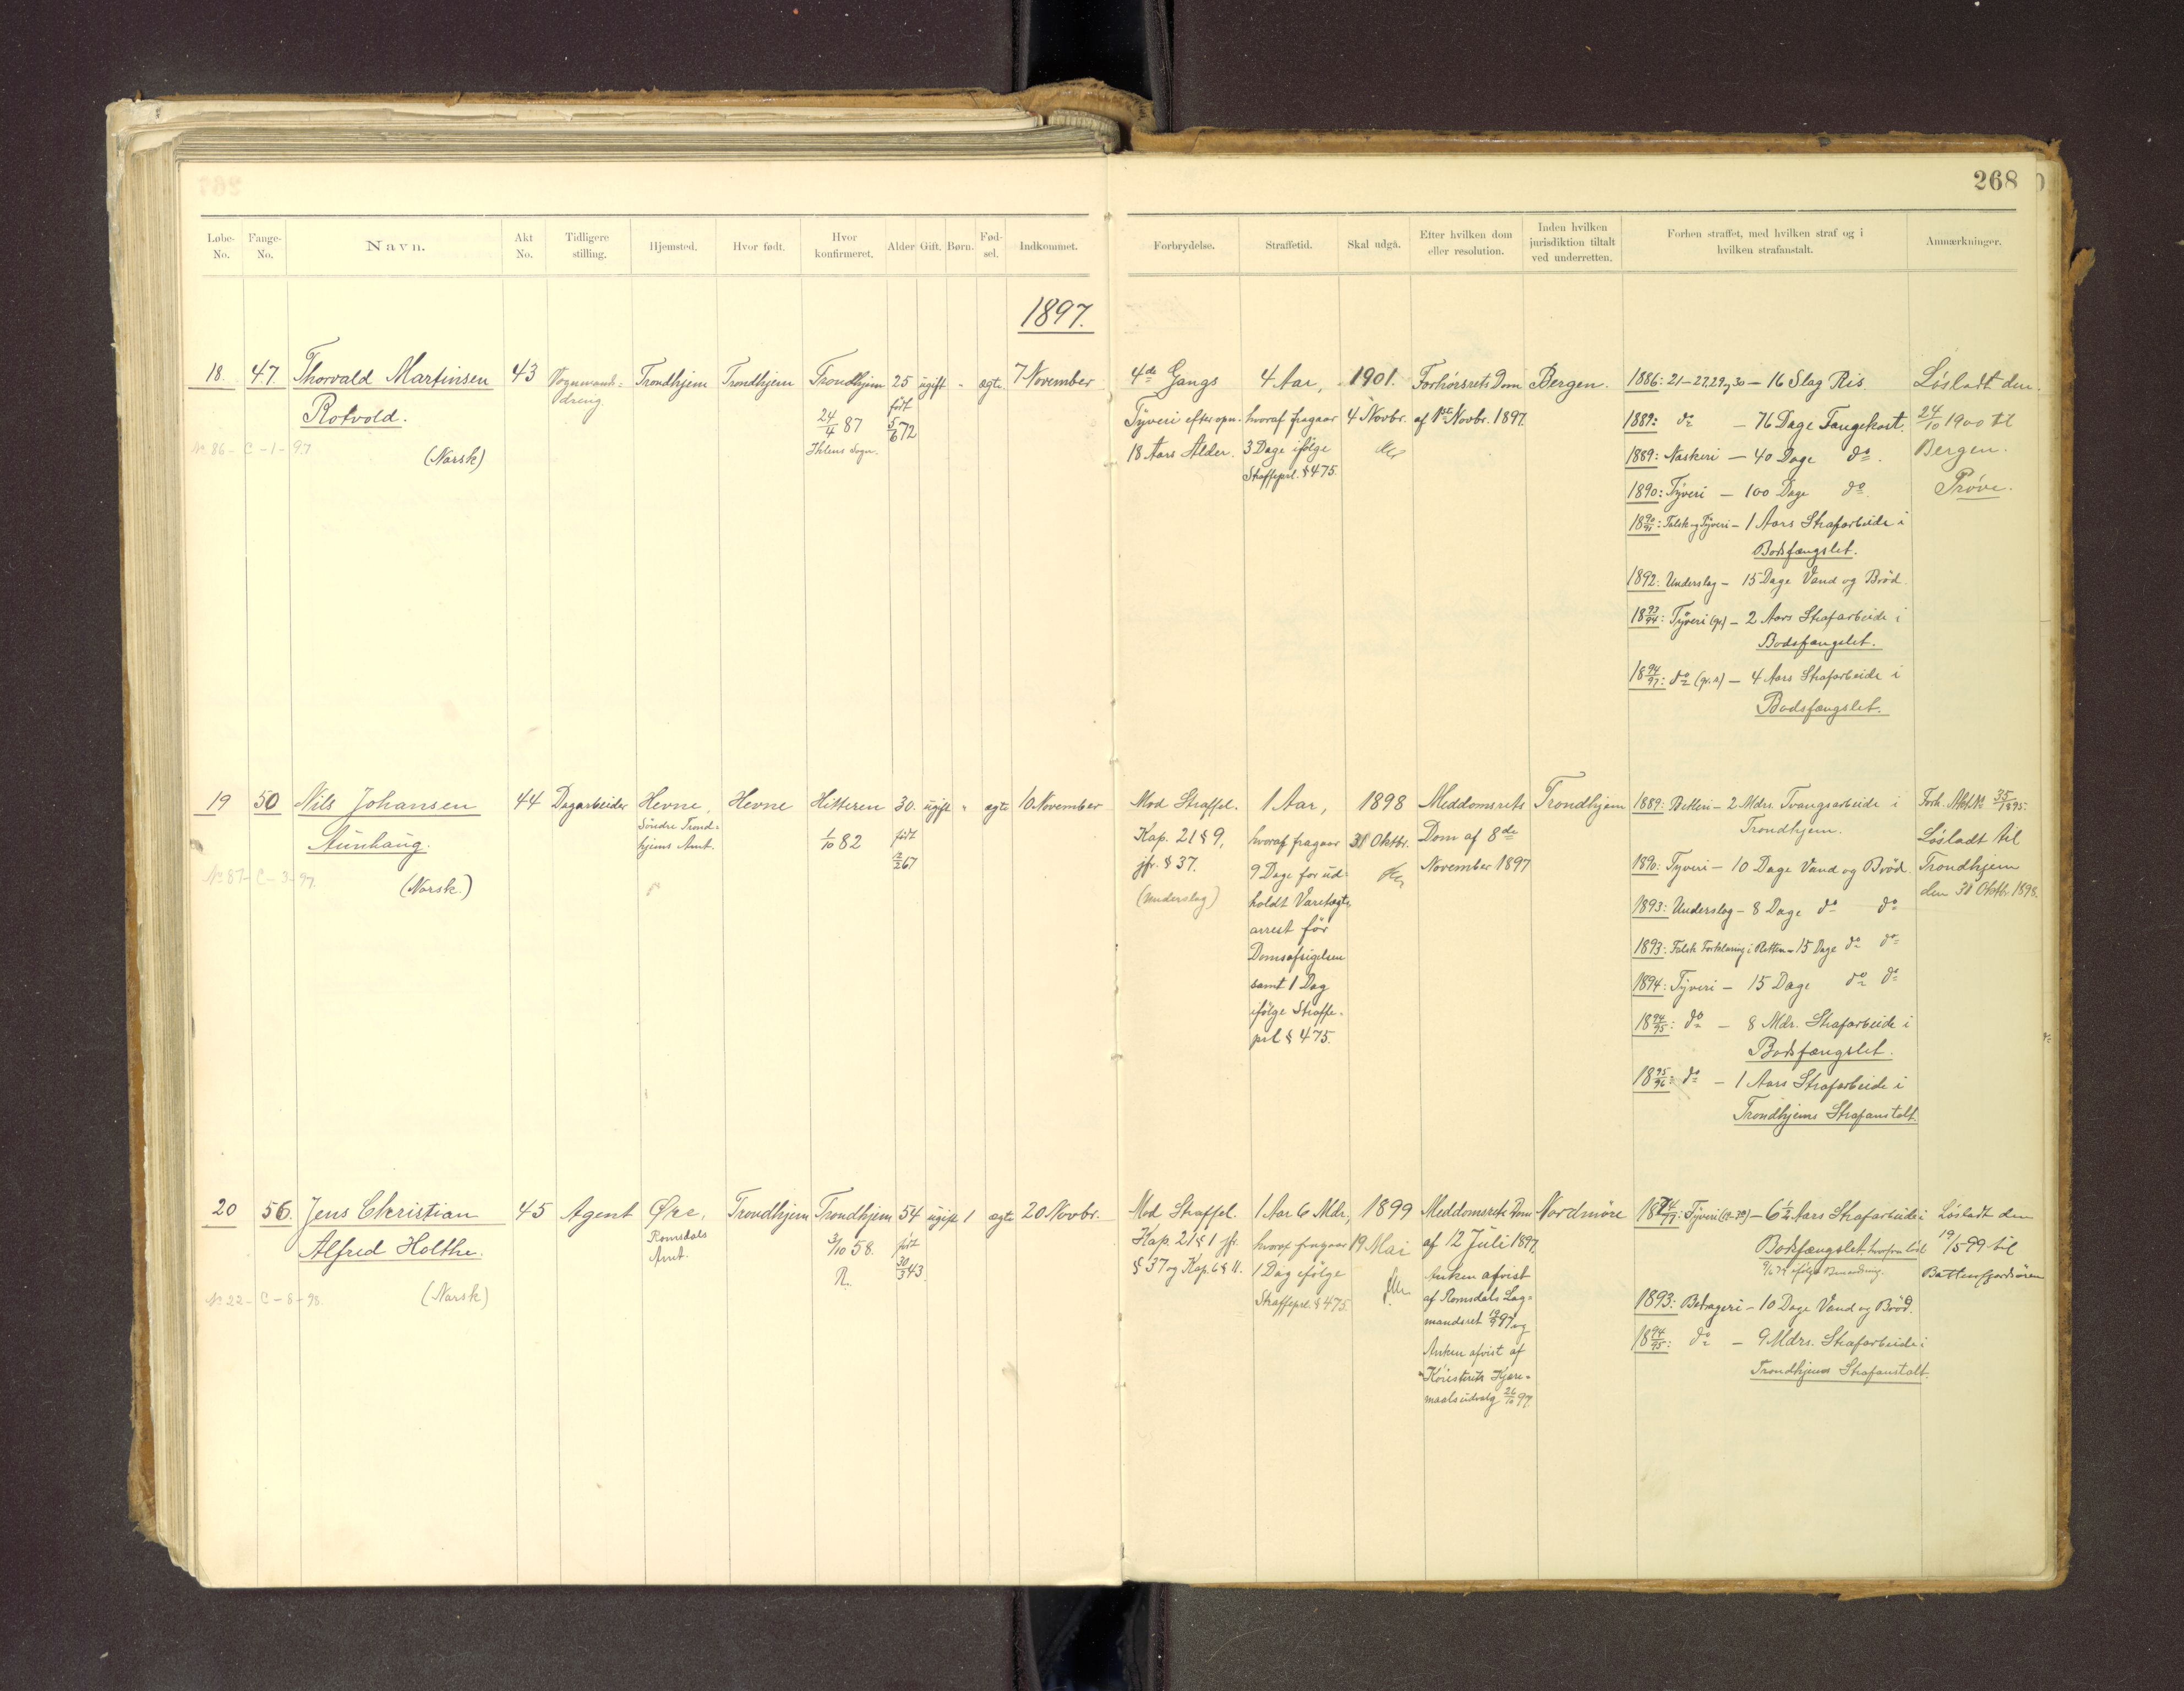 268
Løbe-No. Fange-No. Navn. Akt No. Tidligere stilling. Hjemsted. Hvor født. Hvor konfirmeret. Alder Gift. Børn. Fød-sel. Indkommet. Forbrydelse. Straffetid. Skal udgå. Efter hvilken dom eller resolution. Inden hvilken jurisdiktion tiltalt ved underretten. Forhen straffet, med hvilken straf og i hvilken strafanstalt. Anmærkninger.
1897.
18. 47. Thorvald Martinsen
Rotvold.
(Norsk)
No 86 - C - 1 - 97
43
Vognmands-
dreng.
Trondhjem
Trondhjem
Trondhjem
24/4 87
Ihlens Sogn.
25
født
5/6 72
ugift
"
ægte
7 November
4de Gangs
Tyveri efter opn.
18 Aars Alder.
4 Aar,
hvoraf fragaar
3 Dage ifølge
Straffeprl. § 475.
1901.
4 Novbr.
Forhørsrets Dom
af 1ste Novbr. 1897.
Bergen.
1886: 21-27, 29 og 30 — 16 Slag Ris.
1889: do — 76 Dage Fangekost.
1889: Naskeri — 40 Dage do.
1890: Tyveri — 100 Dage do.
18 90/91: Falsk og Tyveri — 1 Aars Strafarbeide i
Bodsfængslet.
1892: Underslag — 15 Dage Vand og Brød.
18 93/94: Tyveri (gr) — 2 Aars Strafarbeide i
Bodsfængslet.
18 94/97: do — 4 Aars Strafarbeide i
Bodsfængslet.
Løsladt den
24/10 1900 til
Bergen.
Prøve.
19 50 Nils Johansen
Aunhaug.
(Norsk.)
No 87 - C - 3 - 97.
44
Dagarbeider
Hevne,
Søndre Trond-
hjems Amt.
Hevne
Hitteren
1/10 82
30.
født
12/2 67
ugift
"
ægte
10. November
Mod Straffel.
Kap. 21 § 9,
jfr. § 37.
(Underslag)
1 Aar,
hvoraf fragaar
9 Dage for ud-
holdt Varetægts-
arrest før
Domsafsigelsen
samt 1 Dag
ifølge Straffe-
prl § 475.
1898
31 Oktbr.
Meddomsrets
Dom af 8de
November 1897
Trondhjem
1889: Betleri — 2 Mdrs Tvangsarbeide i
Trondhjem.
1890: Tyveri — 10 Dage Vand og Brød.
1893: Underslag — 8 Dage do do
1893: Falsk Forklaring i Retten — 15 Dage do do
1894: Tyveri — 15 Dage do do
18 94/95: do — 8 Mdr. Strafarbeide i
Bodsfængslet.
18 95/96: do — 1 Aars Strafarbeide i
Trondhjems Strafanstalt.
Forh. Akt No 35/1895.
Løsladt til
Trondhjem
den 31 Oktbr 1898.
20 56. Jens Christian
Alfred Holthe.
(Norsk)
No 22 - C - 8 - 98.
45
Agent
Øre,
Romsdals
Amt.
Trondhjem
Trondhjem
3/10 58.
54
født
30/3 43.
ugift
1
ægte
20 Novbr.
Mod Straffel.
Kap. 21 § 1 jfr.
§ 37 og Kap. 6 § 11.
1 Aar 6 Mdr.,
hvoraf fragaar
1 Dag ifølge
Straffeprl. § 475.
1899
19 Mai
Meddomsrets Dom
af 12 Juli 1897.
Anken afvist
af Romsdals Lag-
mandsret 97 og
Anken afvist af
Høiesterets Kjære-
maalsudvalg 26/10 97.
Nordmøre
Tyveri — 6½ Aars Strafarbeide i
Bodsfængslet, hvorfra løsl
ifølge Benaadning.
1893: Bedrageri — 10 Dage Vand og Brød.
18 94/95: do — 9 Mdrs. Strafarbeide i
Trondhjems Strafanstalt.
Løsladt den
19/5 99 til
Battenfjordsøren